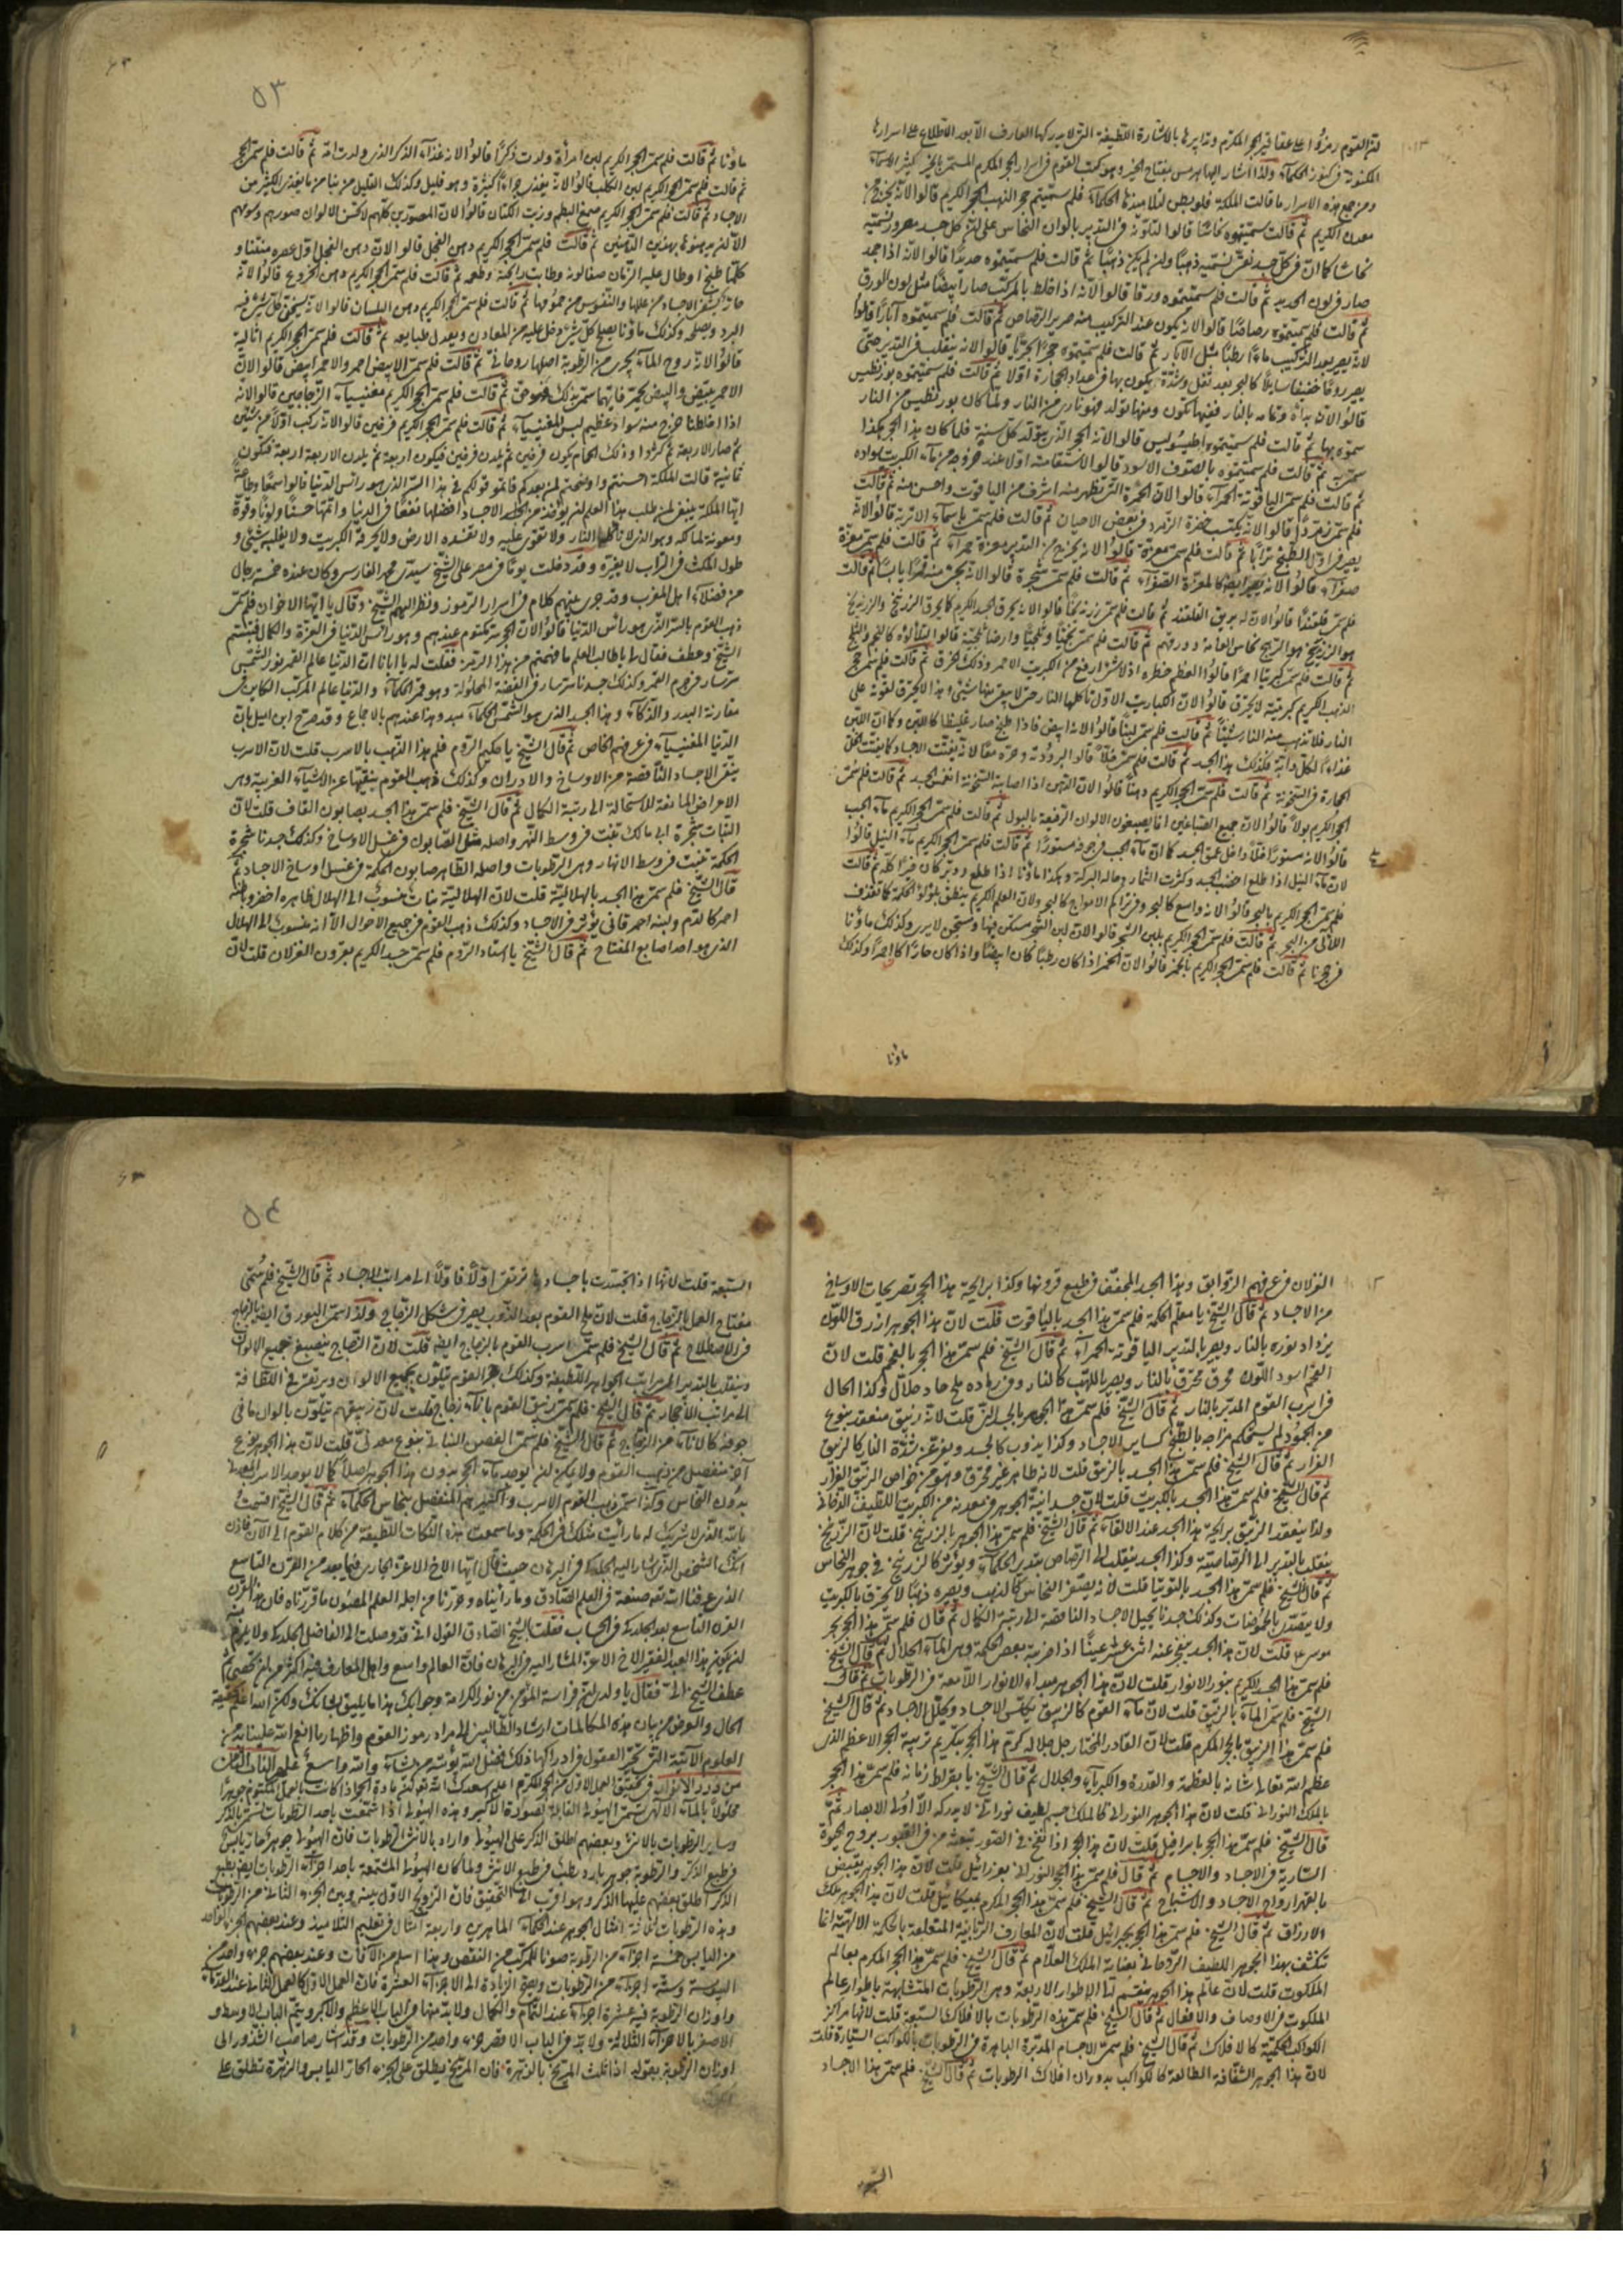 لغز القوم رمزوا على عقاقير الحجر المكرم وتدابيرها بالاشارة اللطيفة التى لا يدركها العارف الا بعد الاطلاع على اسرارها
المكنونة فى كنوز الحكماء ولذا اشار اليها هرمس بمفتاح الخير وهو كتب القوم فى اسرار الحجر المكرم المسمى بالحجر كثير الاسماء
ومن جميع هذه الاسرار ما قالت الملكة فلوبطر لتلاميذها الحكماء فلم سميتم حجر الذهب الحجر الكريم قالوا لانه يخرج من
معدن الكريم ثم قالت سميتموه نحاسا قالوا لتلونه فى التدبير بالوان النحاس على ان كل جسد معروف نسميه
نحاسا كما ان فى كل جسد نقى نسميه ذهبا وان لم يكن ذهبا ثم قالت فلم سميتموه حديدا قالوا لانه اذا جمد
صار فى لون الحديد ثم قالت فلم سميتموه ورقا قالوا لانه اذا خلط بالمركب صار ابيضا مثل لون الورق
ثم قالت فلم سميتموه رصاصا قالوا لانه يكون عند التركيب منه صرير الرصاص ثم قالت فلم سميتموه آبارا قالوا
لانه يصير بعد التركيب ماء رطبا مثل الآبار ثم قالت فلم سميتموه حجرا بحريا قالوا لانه ينقلب فى التدبير حتى
يصير روحا خفيفا سايلا كالبحر بعد ثقل وشدة يكون بها فى عداد الحجارة اولا ثم قالت فلم سميتموه بورنطيس
قالوا لان بداه وتمامه بالنار ففيها تكون ومنها تولد فهو نارى من النار ولما كان بورنطيس من النار
سموه بها ثم قالت فلم سميتموه اطيسوس قالوا لانه الحجر الذى يتولد كل سنة فلما كان هذا الحجر هكذا
سمى ثم قالت فلم سميتموه بالصوف الاسود قالوا لاستقامته اولا عند خروجه من ماء الكبريت بسواده
ثم قالت فلم سمى الياقوتة الحمراء قالوا لان الحمرة التى تظهر منه اشرف من الياقوت واحسن منه ثم قالت
فلم سمى زمردا قالوا لانه يكتسب خضرة الزمرد فى بعض الاحيان ثم قالت فلم سمى باسماء الاتربة قالوا لانه
يصير فى اول الطبخ ترابا ثم قالت فلم سمى مغرة قالوا لانه يخرج من التدبير مغرة حمراء ثم قالت فلم سمى مغرة
صفراء قالوا لانه يصير ايضا كالمغرة الصفراء ثم قالت فلم سمى شجرة قالوا لانه
فلم سمى قلقندا قالوا لان له بريق القلقند ثم قالت فلم سمى زرنيخا قالوا لانه يحرق الجسد الكريم كما يحرق الزرنيخ
ثم قالت فلم سمى كبريتا احمرا قالوا لعظم خطره اذ لا شئ ارفع من الكبريت الاحمر وذلك فخرق ثم قالت فلم سمى حجر
الذهب الكريم كبريتة لا تحترق قالوا لان الكباريت الاول تاكلها النار حتى لا يبقى منها شئ وهذا لا يحترق لقوته على
النار فلا تذهب منه النار شيئا ثم قالت فلم سمى لبنا قالوا لانه ابيض فاذا طبخ صار غليظا كاللبن وكما ان اللبن
غذاء لكل دابة فكذلك هذا الجسد ثم قالت فلم سمى خلا قالوا لبرودته وحره معا لانه يفتت الاجساد كما يفتت الخل
الحجارة فى السخونة ثم قالت فلم سمى الحجر الكريم دهنا قالوا لان الدهن اذا اصابته السخونة انغمس الجسد ثم قالت فلم سمى
الحجر الكريم بولا قالوا لان جميع الصباغين انما يصبغون الالوان الرفيعة بالبول ثم قالت فلم سمى الحجر الكريم ماء الجب
قالوا لانه مستورا داخل عمق الجسد كما ان ماء الجب فى جوفه مستورا ثم قالت فلم سمى الحجر الكريم ماء النيل قالوا
لان ماء النيل اذا طلع اخضب الجسد وكثرت الثمار وحاله البركة وهكذا ماؤنا اذا طلع ودبر كان خيرا كله ثم قالت
فلم سمى الحجر الكريم بالبحر قالوا لانه واسع كالبحر وفى تراكم الامواج كالبحر ولان العلم الكريم ينطق بلؤلؤ الحكمة كما تقذف
اللآلى من البحر ثم قالت فلم سمى الحجر الكريم بلبن الشجر قالوا لان لبن الشجر مسكن فيها ومستجن لا يرى وكذلك ماؤنا
فى حجرنا ثم قالت فلم سمى الحجر الكريم بالجمر قالوا لان الجمر اذا كان رطبا كان ابيضا واذا كان حارا كان احمرا وكذلك
ماؤنا
٥٣
ماؤنا ثم قالت فلم سمى الحجر الكريم لبن امرأة ولدت ذكرا قالوا لانه غذاء الذكر الذى ولدت امه ثم قالت فلم سمى الحجر
ثم قالت فلم سمى الحجر الكريم لبن الكلب قالوا لانه يغذى جراء كثيرة وهو قليل وكذلك القليل من مائنا يغذى الكثير من
الاجساد ثم قالت فلم سمى الحجر الكريم صمغ البطم وزيت الكتان قالوا لان المصورين كلهم لا تحسن الالوان صورهم وسومهم
الا ان يدهنوها بهذين الدهنين ثم قالت فلم سمى الحجر الكريم دهن الفجل قالوا لان دهن الفجل اول عصره منتنا و
كلما طبخ او طال عليه الزمان صفا لونه وطابت رائحته وطعمه ثم قالت فلم سمى الحجر الكريم دهن الخروع قالوا لانه
حار يشفى الاجساد من عللها والنفوس من حمومها ثم قالت فلم سمى الحجر الكريم دهن البلسان قالوا لانه يسخن كل شئ فيه
البرد ويصلحه وكذلك ماؤنا يصلح كل شئ دخل عليه من المعادن ويعدل طبايعه ثم قالت فلم سمى الحجر الكريم انثالية
قالوا لانه روح الماء يجرى من الرطوبة اصلها روحانى ثم قالت فلم سمى الابيض احمر والاحمر ابيض قالوا لان
الاحمر يبيض والبيض يحمر فايهما سمى بذلك فهو حق ثم قالت فلم سمى الحجر الكريم مغنيسياء الزجاجين قالوا لانه
اذا اخلطنا خرج منه سواد عظيم ليس للمغنيسياء ثم قالت فلم سمى الحجر الكريم فرفين قالوا لانه ركب اولا من شيئين
ثم صار الاربعة ثم كثروا وذلك الحمام يكون فرخين ثم يلدن فرخين فيكون اربعة ثم يلدن الاربعة اربعة فيكون
ثمانية قالت الملكة احسنتم واوضحتم لمن بعدكم فاتموا قولكم فى هذا السر الذى هو راس الدنيا قالوا سمعا وطاعة
ايتها الملكة ينبغى لمن طلب هذا العلم ان يؤخذ من الاجساد افضلها نفعا فى الدنيا واتمها حسنا ولونا وقوة
ومعونة لمالكه وهو الذى لا تاكله النار ولا تقوى عليه ولا تفسده الارض ولا يحرقه الكبريت ولا يغلبه شئ و
طول المكث فى التراب لا يغيره وقد دخلت يوما فى مصر على الشيخ سيدى محمد الفارسى وكان عنده خمسة رجال
من فضلاء اهل المغرب وقد جرى بينهم كلام فى اسرار الرموز ونظر اليهم الشيخ وقال يا ايها الاخوان فلم سمى
ذهب القوم بالسر الذى هو رأس الدنيا قالوا لان الحجر سر مكتوم عندهم وهو راس الدنيا فى العزة والكمال فتبسم
الشيخ وعطف فقال لى يا طالب العلم ما فهمتم من هذا الرمز فقلت له يا ابانا ان الدنيا عالم القمر نور الشمس
سر سار فى جرم القمر وكذلك جسدنا سر سار فى الفضة المحلولة وهو قمر الحكماء والدنيا عالم المركب الكاين فى
مقارنة البدر والذكاء وهذا الجسد الذى هو الشمس الحكماء مبدء وهذا عندهم بالاجماع وقد صرح ابن اميل بان
الدنيا المغنيسياء فى عرفهم الخاص ثم قال الشيخ يا حكيم الروم فلم هذا الذهب بالاسرب قلت لان الاسرب
ينقى الاجساد الناقصة من الاوساخ والادران وكذلك ذهب القوم ينقيها عن الاشياء الغريبة وهى
الاعراض المانعة للاستحالة الى رتبة الكمال ثم قال الشيخ فلم سمى هذا الجسد بصابون القاف قلت لان
النبات شجرة ابى مالك تنبت فى وسط النهر واصله مثل الصابون فى غسل الاوساخ وكذلك جسدنا شجرة
الحكمة تنبت فى وسط الانهار وهى الرطوبات واصله الطاهر صابون الحكمة فى غسل اوساخ الاجساد ثم
قال الشيخ فلم سمى هذا الجسد بالهلالية قلت لان الهلالية نبات منسوب الى الهلال ظاهره اخضر وباطنه
احمر كالدم ولبنه احمر قانى يؤثر فى الاجساد وكذلك ذهب القوم فى جميع الاحوال الا انه منسوب الى الهلال
الذى هو احد اصابع المفتاح ثم قال الشيخ يا استاد الروم فلم سمى جسد الكريم بقرون الغزلان قلت لان
الغزلان فى عرفهم الزوابق وهذا الجسد المجفف فى طبع قرونها وكذا برايحة هذا الحجر تصريحات الاوساخ
من الاجساد ثم قال الشيخ يا معلم الحكمة فلم سمى هذا الجسد بالياقوت قلت لان هذا الجوهر ازرق اللون
يزداد نوره بالنار ويصير بالتدبير الياقوتة الحمراء ثم قال الشيخ فلم سمى هذا الحجر بالفحم قلت لان
الفحم اسود اللون محرق محترق بالنار ويصير باللهب كالنار وفى رماده ملح حاد حلال وكذا الحال
فى اسرب القوم المدبر بالنار ثم قال الشيخ فلم سمى هذا الجوهر بالجسد الثرى قلت لانه زنيق منعقد بنوع
من الجمود لم يستحكم مزاجه بالطبخ كساير الاجساد وكذا يذوب كالجسد ويفر عن شدة النار كالزيبق
الفرار ثم قال الشيخ فلم سمى هذا الجسد بالزيبق قلت لانه طاهر غير محترق وهو من خواص الزيبق الفرار
ثم قال الشيخ فلم سمى هذا الجسد بالكبريت قلت لان جسدانية الجوهر فى معدنه من الكبريت اللطيف الدخانى
ولذا ينعقد الزيبق برايحة هذا الجسد عند الالقاء ثم قال الشيخ فلم سمى هذا الجوهر بالزرنيخ قلت لان الزرنيخ
ينقلب بالتدبير الى الرصاصية وكذا الجسد ينقلب الى الرصاص بتدبير الحكماء ويؤثر كالزرنيخ فى جوهر النحاس
ثم قال الشيخ فلم سمى هذا الجسد بالتوتيا قلت لانه يصفر النحاس كالذهب ويصيره ذهبا لا يحترق بالكبريت
ولا ينفسد بالحموضات وكذلك جسدنا يحيل الاجساد الناقصة الى رتبة الكمال ثم قال فلم سمى هذا الحجر بحجر
موسى قلت لان هذا الجسد ينفجر عنه اثنى عشر عينا اذا ضربته بعصى الحكمة وهى الماء الحلال ثم قال الشيخ
فلم سمى هذا الجسد الكريم بنور الانوار قلت لان هذا الجوهر مبداء الانوار اللامعة فى الرطوبات ثم قال
الشيخ فلم سمى الماء بالزيبق قلت لان ماء القوم كالزيبق يكلس الاجساد ويحلل الاجساد ثم قال الشيخ
فلم سمى هذا الزيبق بالحجر المكرم قلت لان القادر المختار جل جلاله كرم هذا الحجر بتكريم تربية الحجر الاعظم الذى
عظم الله تعالى شانه بالعظمة والقدرة والكبرياء والجلال ثم قال الشيخ يا بقراط زمانه فلم سمى هذا الحجر
بالملك النورانى قلت لان هذا الجوهر النورانى كالملك جسم لطيف نورانى لا يدركه الا اولو الابصار ثم
قال الشيخ فلم سمى هذا الحجر باسرافيل قلت لان هذا الحجر اذا نفخ فى الصور تبعث من فى القبور بروح الحيوة
السارية فى الاجساد والاجسام ثم قال فلم سمى هذا الحجر النورانى بعزرائيل قلت لان هذا الجوهر يقبض
بالقهر ارواح الاجساد والاشباح ثم قال الشيخ فلم سمى هذا الحجر المكرم بميكائيل قلت لان هذا الجوهر ملك
الارزاق ثم قال الشيخ فلم سمى هذا الحجر بجبرائيل قلت لان المعارف الربانية المتعلقة بالحكمة الالهية انما
تنكشف بهذا الجوهر اللطيف الروحانى بعناية الملك العلام ثم قال الشيخ فلم سمى هذا الحجر المكرم بعالم
الملكوت قلت لان عالم هذا الجوهر ينقسم الى الاطوار الاربعة وهى الرطوبات المتشابهة باطوار عالم
الملكوت فى الاوصاف والافعال ثم قال الشيخ فلم سمى هذه الرطوبات بالافلاك السبعة قلت لانها مراكز
الكواكب الحكمية كالافلاك ثم قال الشيخ فلم سمى الاجسام المدبرة الباهرة فى الرطوبات بالكواكب السيارة قلت
لان هذا الجوهر الشفافة الطالعة كالكواكب بدوران افلاك الرطوبات ثم قال الشيخ فلم سمى هذا الاجساد
السبعة
٥٤
السبعة قلت لانها اذا تجسدت باجسادها ترتقى اولا فاولا الى مراتب الاجساد ثم قال الشيخ فلم سمى
مفتاح العمل بالزجاج قلت لان ملح القوم بعد الذوب يصير فى شكل الزجاج ولذا سمى البورق ايضا بالزجاج
فى الاصطلاح ثم قال الشيخ فلم سمى اسرب القوم بالزجاج ايضا قلت لان الزجاج ينصبغ بجميع الالوان
وينقلب بالتدبير الى مراتب الجواهر اللطيفة وكذلك حجر القوم يتلون بجميع الالوان ويرتقى فى اللطافة
الى مراتب الاحجار ثم قال الشيخ فلم سمى زيبق القوم باناء زجاج قلت لان زيبقهم يتلون بالوان ما فى
جوفه كالاناء من الزجاج ثم قال الشيخ فلم سمى الغصن النباتى بنوع معدنى قلت لان هذا الجوهر نوع
آخر منفصل من ذهب القوم ولا يمكن ان يوجد ماء الحجر بدون هذا الجوهر اصلا كما لا يوجد الاسرب
بدون النحاس وكذا سمى ذهب القوم الاسرب والقشيرهم المنفصل بنحاس الحكماء ثم قال الشيخ اقسمت
بالله الذى لا شريك له ما رأيت مثلك فى الحكمة وما سمعت هذه النكات اللطيفة من كلام القوم الى الآن فاذن
انك الشخص الذى اشار اليه الجلدكى فى البرهان حيث قال ايها الاخ الاعز الجارى فيما بعد من القرن التاسع
الذى عرفنا الله تعالى صنعة فى العلم الصادق وما رأيناه وحررنا من اجله العلم المصون ما قررناه فان هذا القرن
القرن التاسع بعد الجلدكى فى الحساب فقلت للشيخ الصادق القول انى قد وصلت الى الفاضل الجلدكى ولا يلزم
ان يكون هذا العبد الفقير الاخ الاعز المشار اليه فى البرهان فان العالم واسع واهل المعارف فيه اكثر من ان يحصى ثم
عطف الشيخ الى فقال يا ولد ان فراسة المؤمن من نور الكرامة وجوابك هذا ما يليق بجنابك ولكن الله اعلم بحقيقة
الحال والغرض من بيان هذه المكالمات ارشاد الطالبين الى مراد رموز القوم واظهار ما انعم الله علينا من
العلوم الآتية التى تحير العقول فى ادراكها ذلك فضل الله يؤتيه من يشاء والله واسع عليم الباب الثالث
من درر الانوار فى تحقيق العمل الاول من الحجر المكرم اعلم اسعدك الله تعالى ان مادة الحجر اذا كانت بالعمل المكتوم جوهرا
محلولا بالماء الالهى تسمى الهيولى القابلة لصورة الاكسير وهذه الهيولى اذا اشتمعت باحد الرطوبات تسمى بالذكر
وساير الرطوبات بالانثى وبعضهم اطلق الذكر على الهيولى واراد بالانثى الرطوبات فان الهيولى جوهر حار يابس
فى طبع الذكر والرطوبة جوهر بارد رطب فى طبع الانثى ولما كان الهيولى المشتمعة باحد اجزاء الرطوبات ايضا بطبع
الذكر اطلق بعضهم عليها الذكر وهو اقرب الى التحقيق فان التزويج الاول بينه وبين الجزء الثانى من الرطوبات
وهذه الرطوبات ثلاثة امثال الجوهر عند الحكماء الماهرين واربعة امثال فى تعليم التلاميذ وعند بعضهم الجزء الواحد
من اليابس خمسة اجزاء من الرطوبة صونا للمركب من النقص وهذا اسلم من الآفات وعند بعضهم جزء واحد من
اليبوسة وستة اجزاء من الرطوبات ويصح الزيادة الى الاجزاء العشرة فان العمل الاول كالعمل الثانى عند القدماء
واوزان الرطوبة فيه عشرة اجزاء عند التمام والكمال ولا بد منها فى الباب الاعظم والاكبر ويتم الباب الاوسط و
الاصغر بالاجزاء الثلاثة ولا بد فى الباب الاقصر جزء واحد من الرطوبات وقد اشار صاحب الشذور الى
اوزان الرطوبة بقوله اذا ثلث المريخ بالزهرة فان المريخ يطلق على الجزء الحار اليابس والزهرة تطلق على